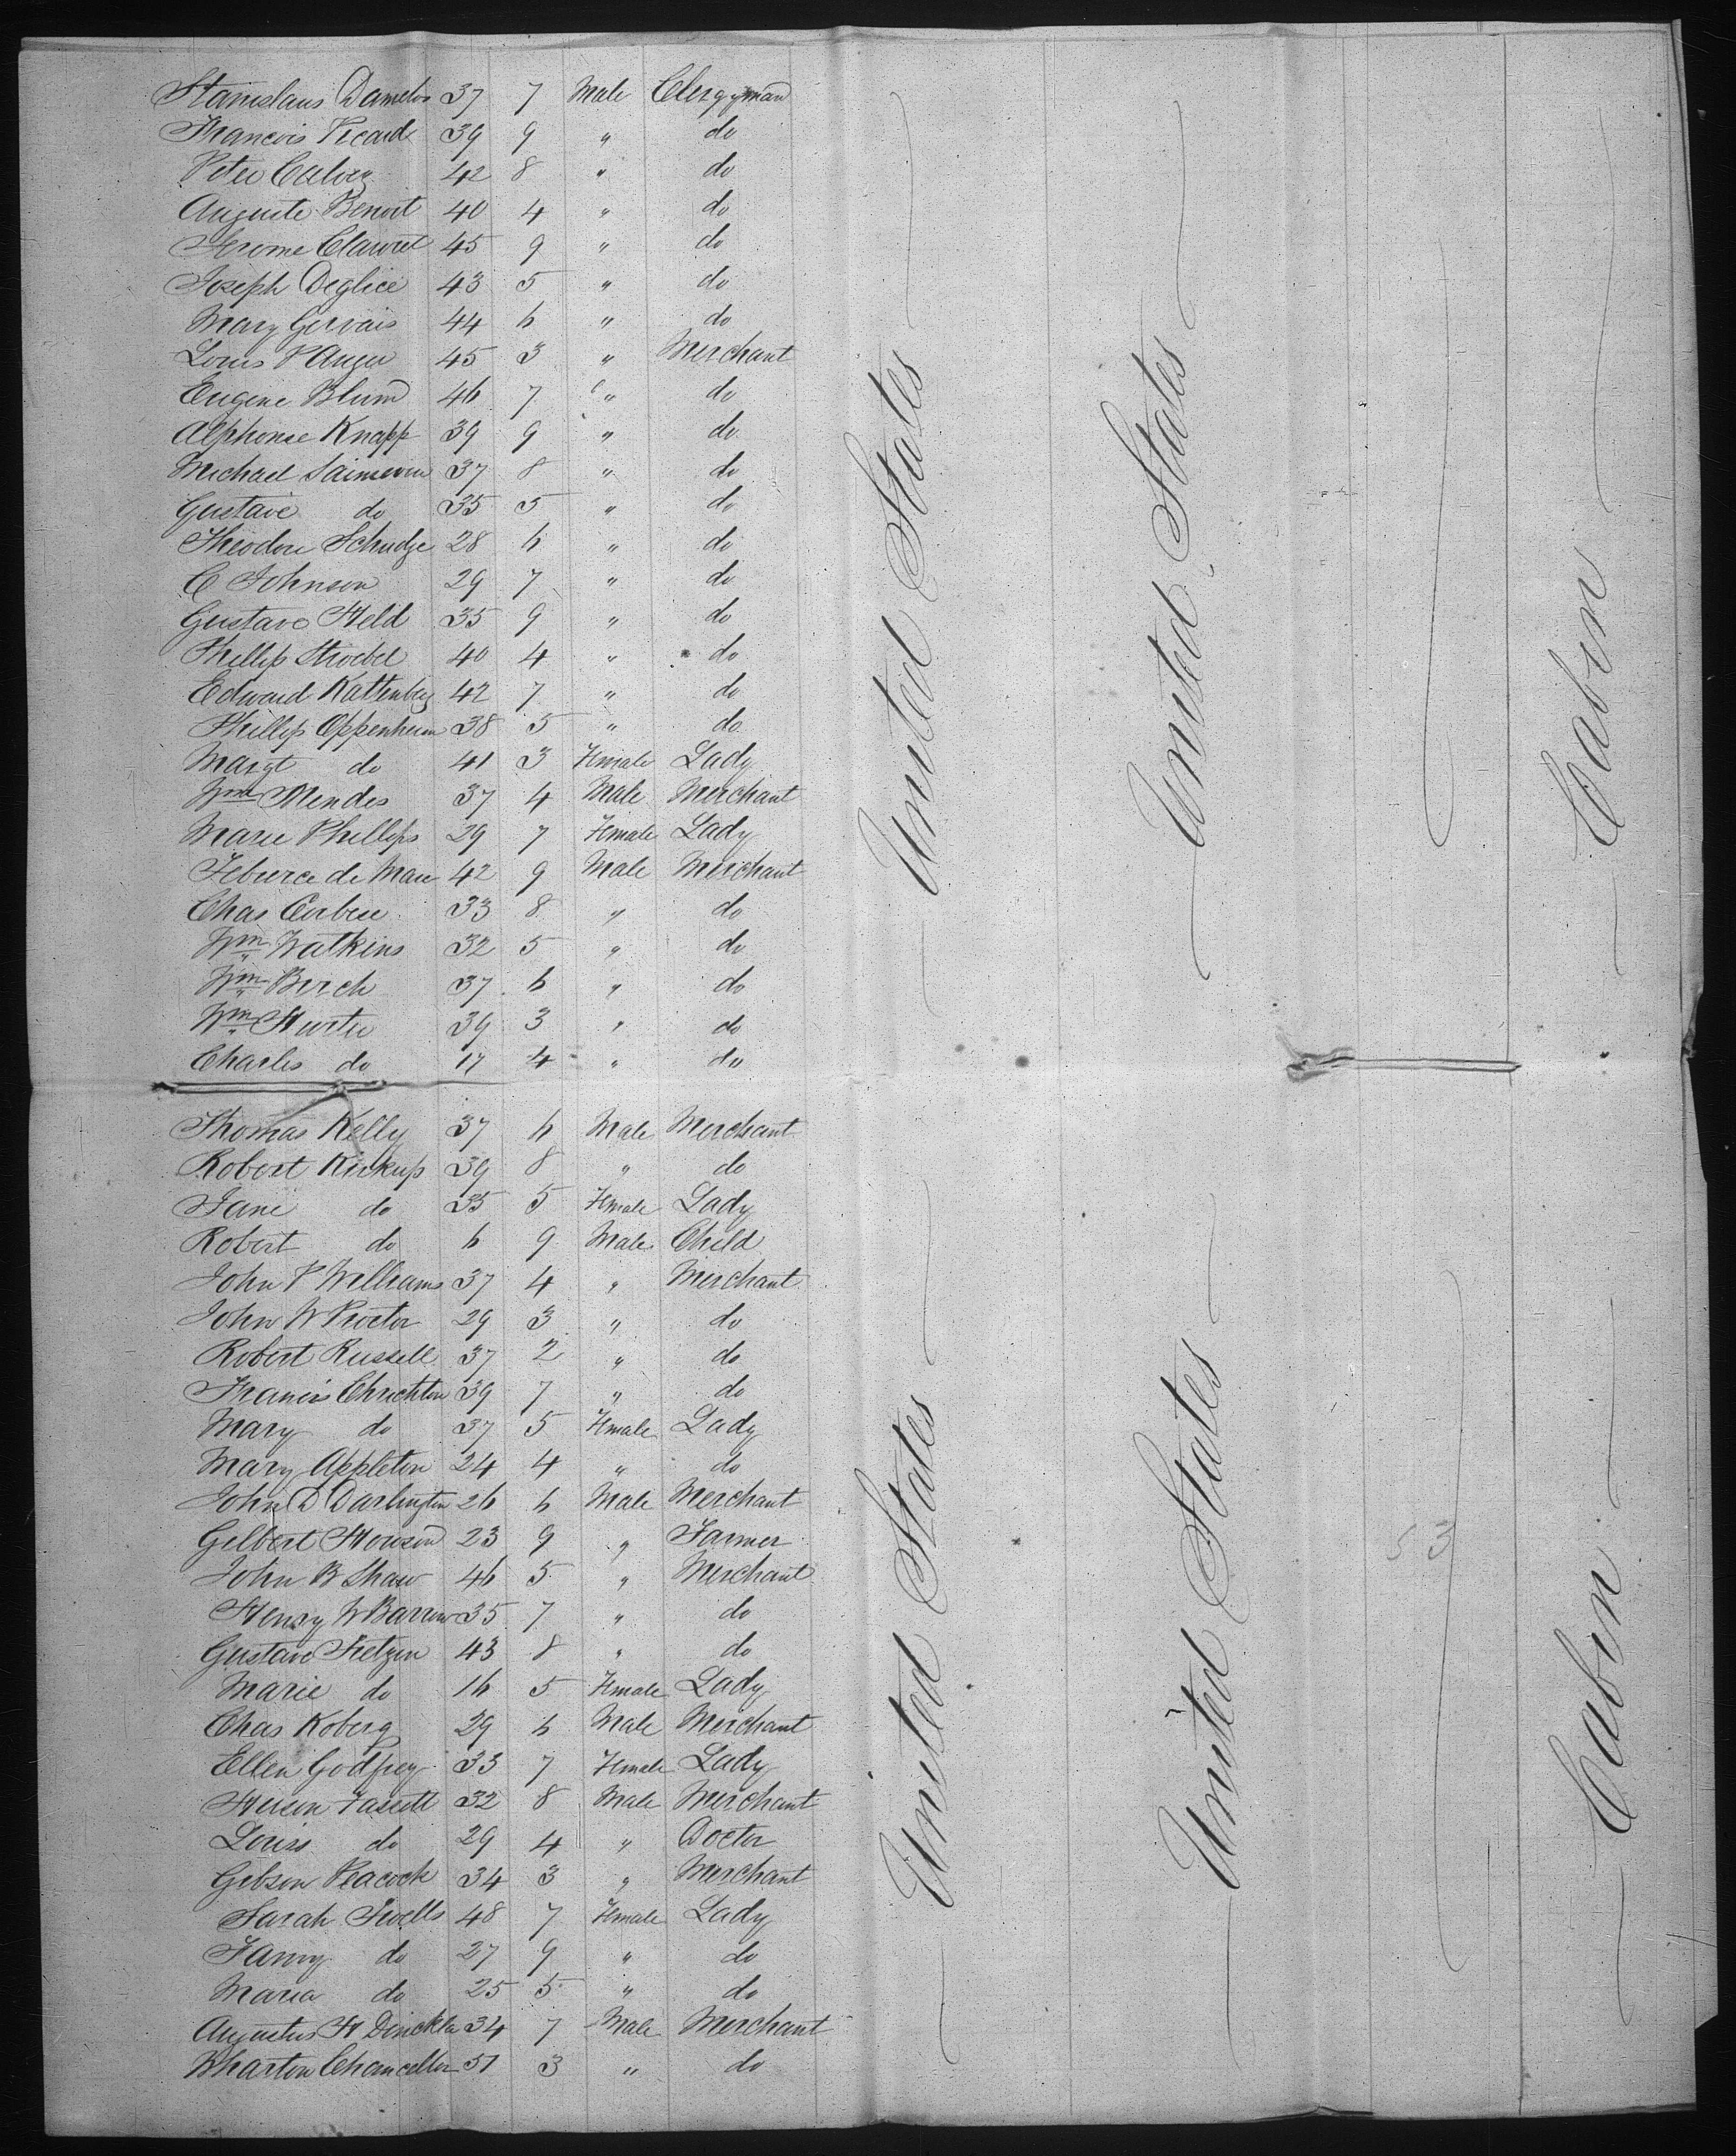 Stanislaus Damelos 37 7 Male Clergyman
Francois Picard 39 9 " do
Peter 42 8 " do
Auguste Benoit 40 4 " do
Jerome Clawret 45 9 " do
Joseph Deglice 43 5 " do
Mary Gervais 44 6 " do
Louis P Auger 45 3 " Merchant
Eugene Blum 46 7 " do
Alphonse Knapp 39 9 " do
Michael Sainsevin 37 8 " do
Gustave do 35 5 " do
Theodore Schudze 28 6 " do
C Johnson 29 7 " do
Gustave Held 35 9 " do
Phillip Stroebel 40 4 " do
Edward Kattenberg 42 7 " do
Phillip Oppenheim 38 5 " do
Margt do 41 3 Female Lady
Wm Mendes 37 4 Male Merchant
Marie Phillips 29 7 Female Lady
de 42 9 Male Merchant
Chas 33 8 " do
Wm Watkins 32 5 " do
Wm Birch 37 6 " do
Wm Hurter 39 3 " do
Charles do 17 4 " do
United States
United States
Cabin
Thomas Kelly 37 6 Male Merchant
Robert Kirkup 39 8 " do
Jane do 35 5 Female Lady
Robert do 6 9 Male Child
John P Williams 37 4 " Merchant
John W Proctor 29 3 " do
Robert Russell 37 2 " do
Francis Chrichton 39 7 " do
Mary do 37 5 Female Lady
Mary Appleton 24 4 " do
John D Darlington 26 6 Male Merchant
Gilbert Howson 23 9 " Farmer
John B Shaw 46 5 " Merchant
Henry W Barrow 35 7 " do
Gustave Fietzen 43 8 " do
Marie do 16 5 Female Lady
Chas Koberg 29 6 Male Merchant
Ellen Godfrey 33 7 Female Lady
Fassett 32 8 Male Merchant
Louiss do 29 4 " Doctor
Gibson Peacock 34 3 " Merchant
Sarah 48 7 Female Lady
Fanny do 27 9 " do
Maria do 25 5 " do
Augustus H Dinckla 34 7 Male Merchant
Wharton Chancellor 51 3 " do
United States
United States
53
Cabin